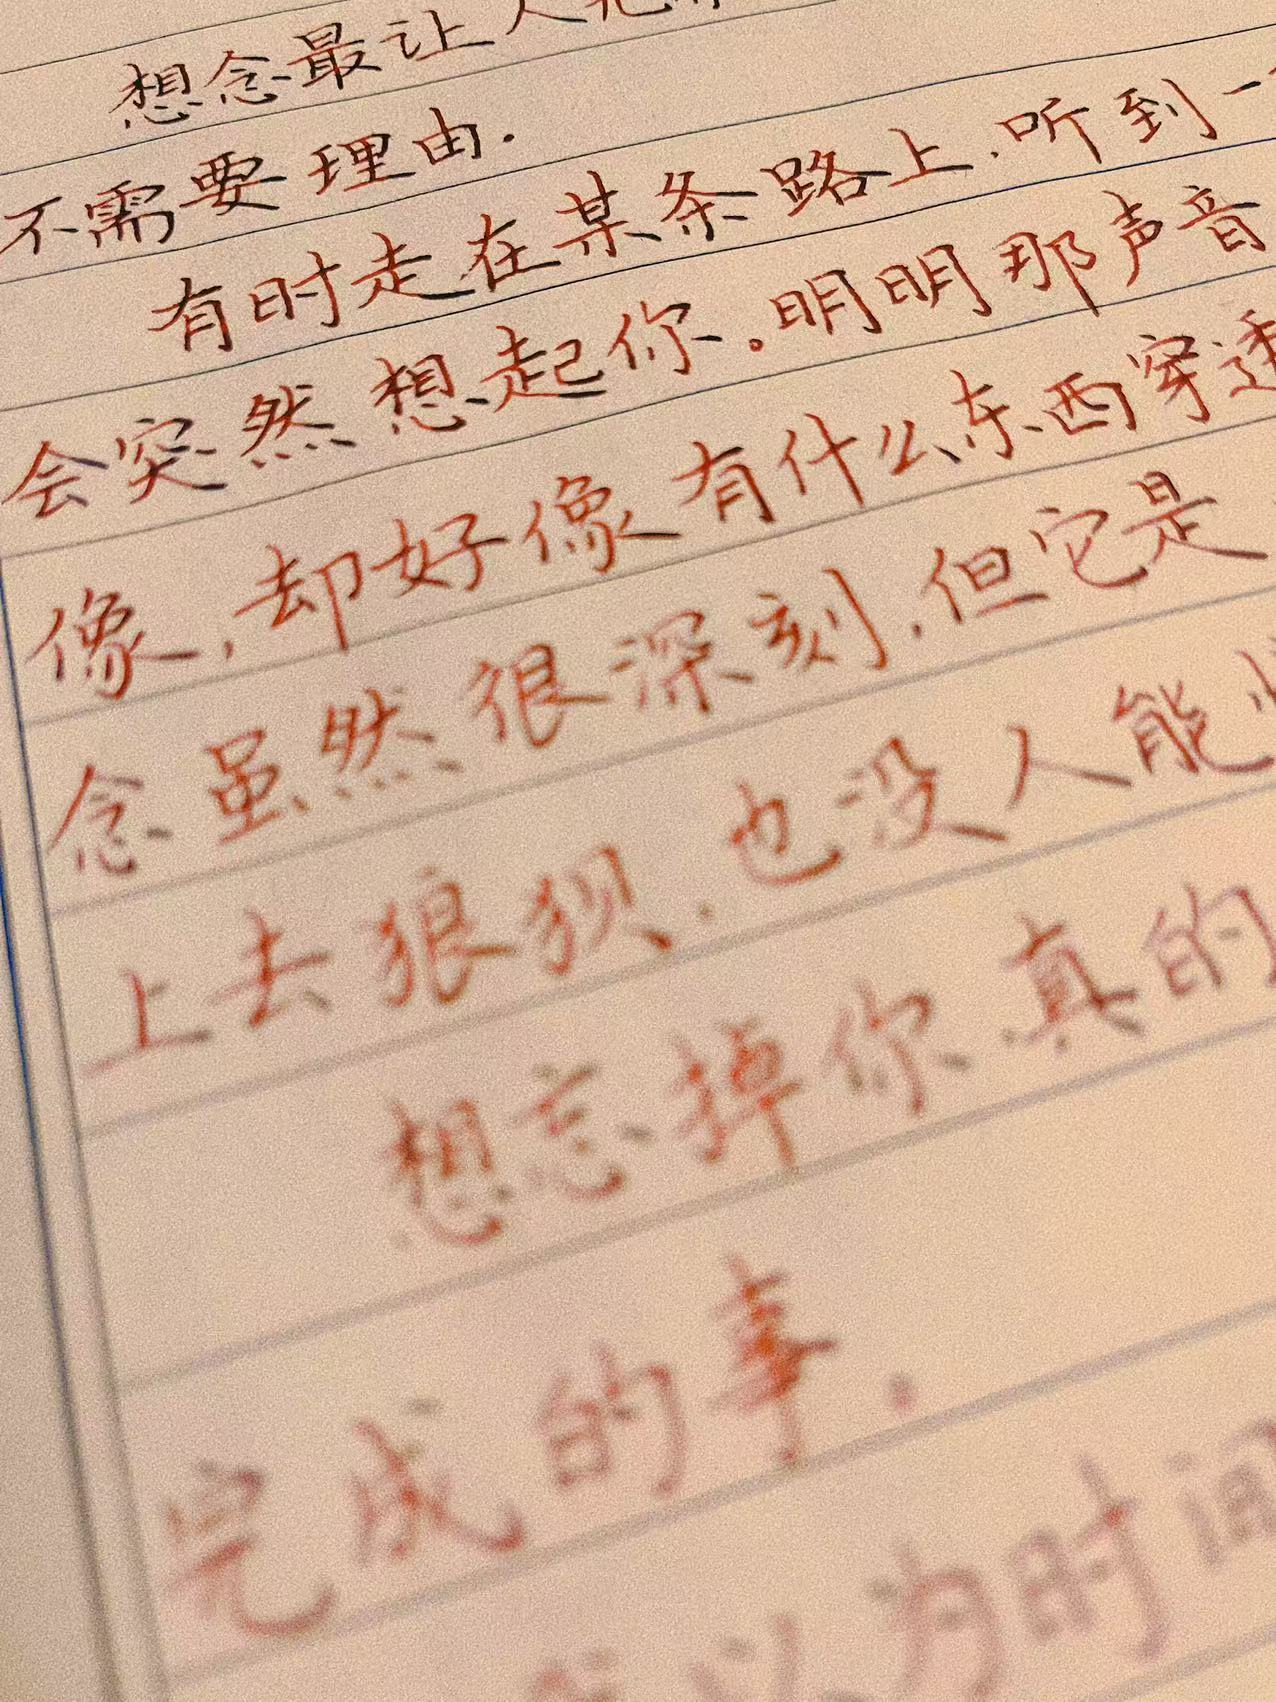 想念最让人
不需要理由.
有时走在某条路上.听到一
会突然想起你。明明那声音
像,却好像有什么东西穿透
念虽然很深刻,但它是
上去狼狈.也没人能
想忘掉你.真的
完成的事.
以为时间